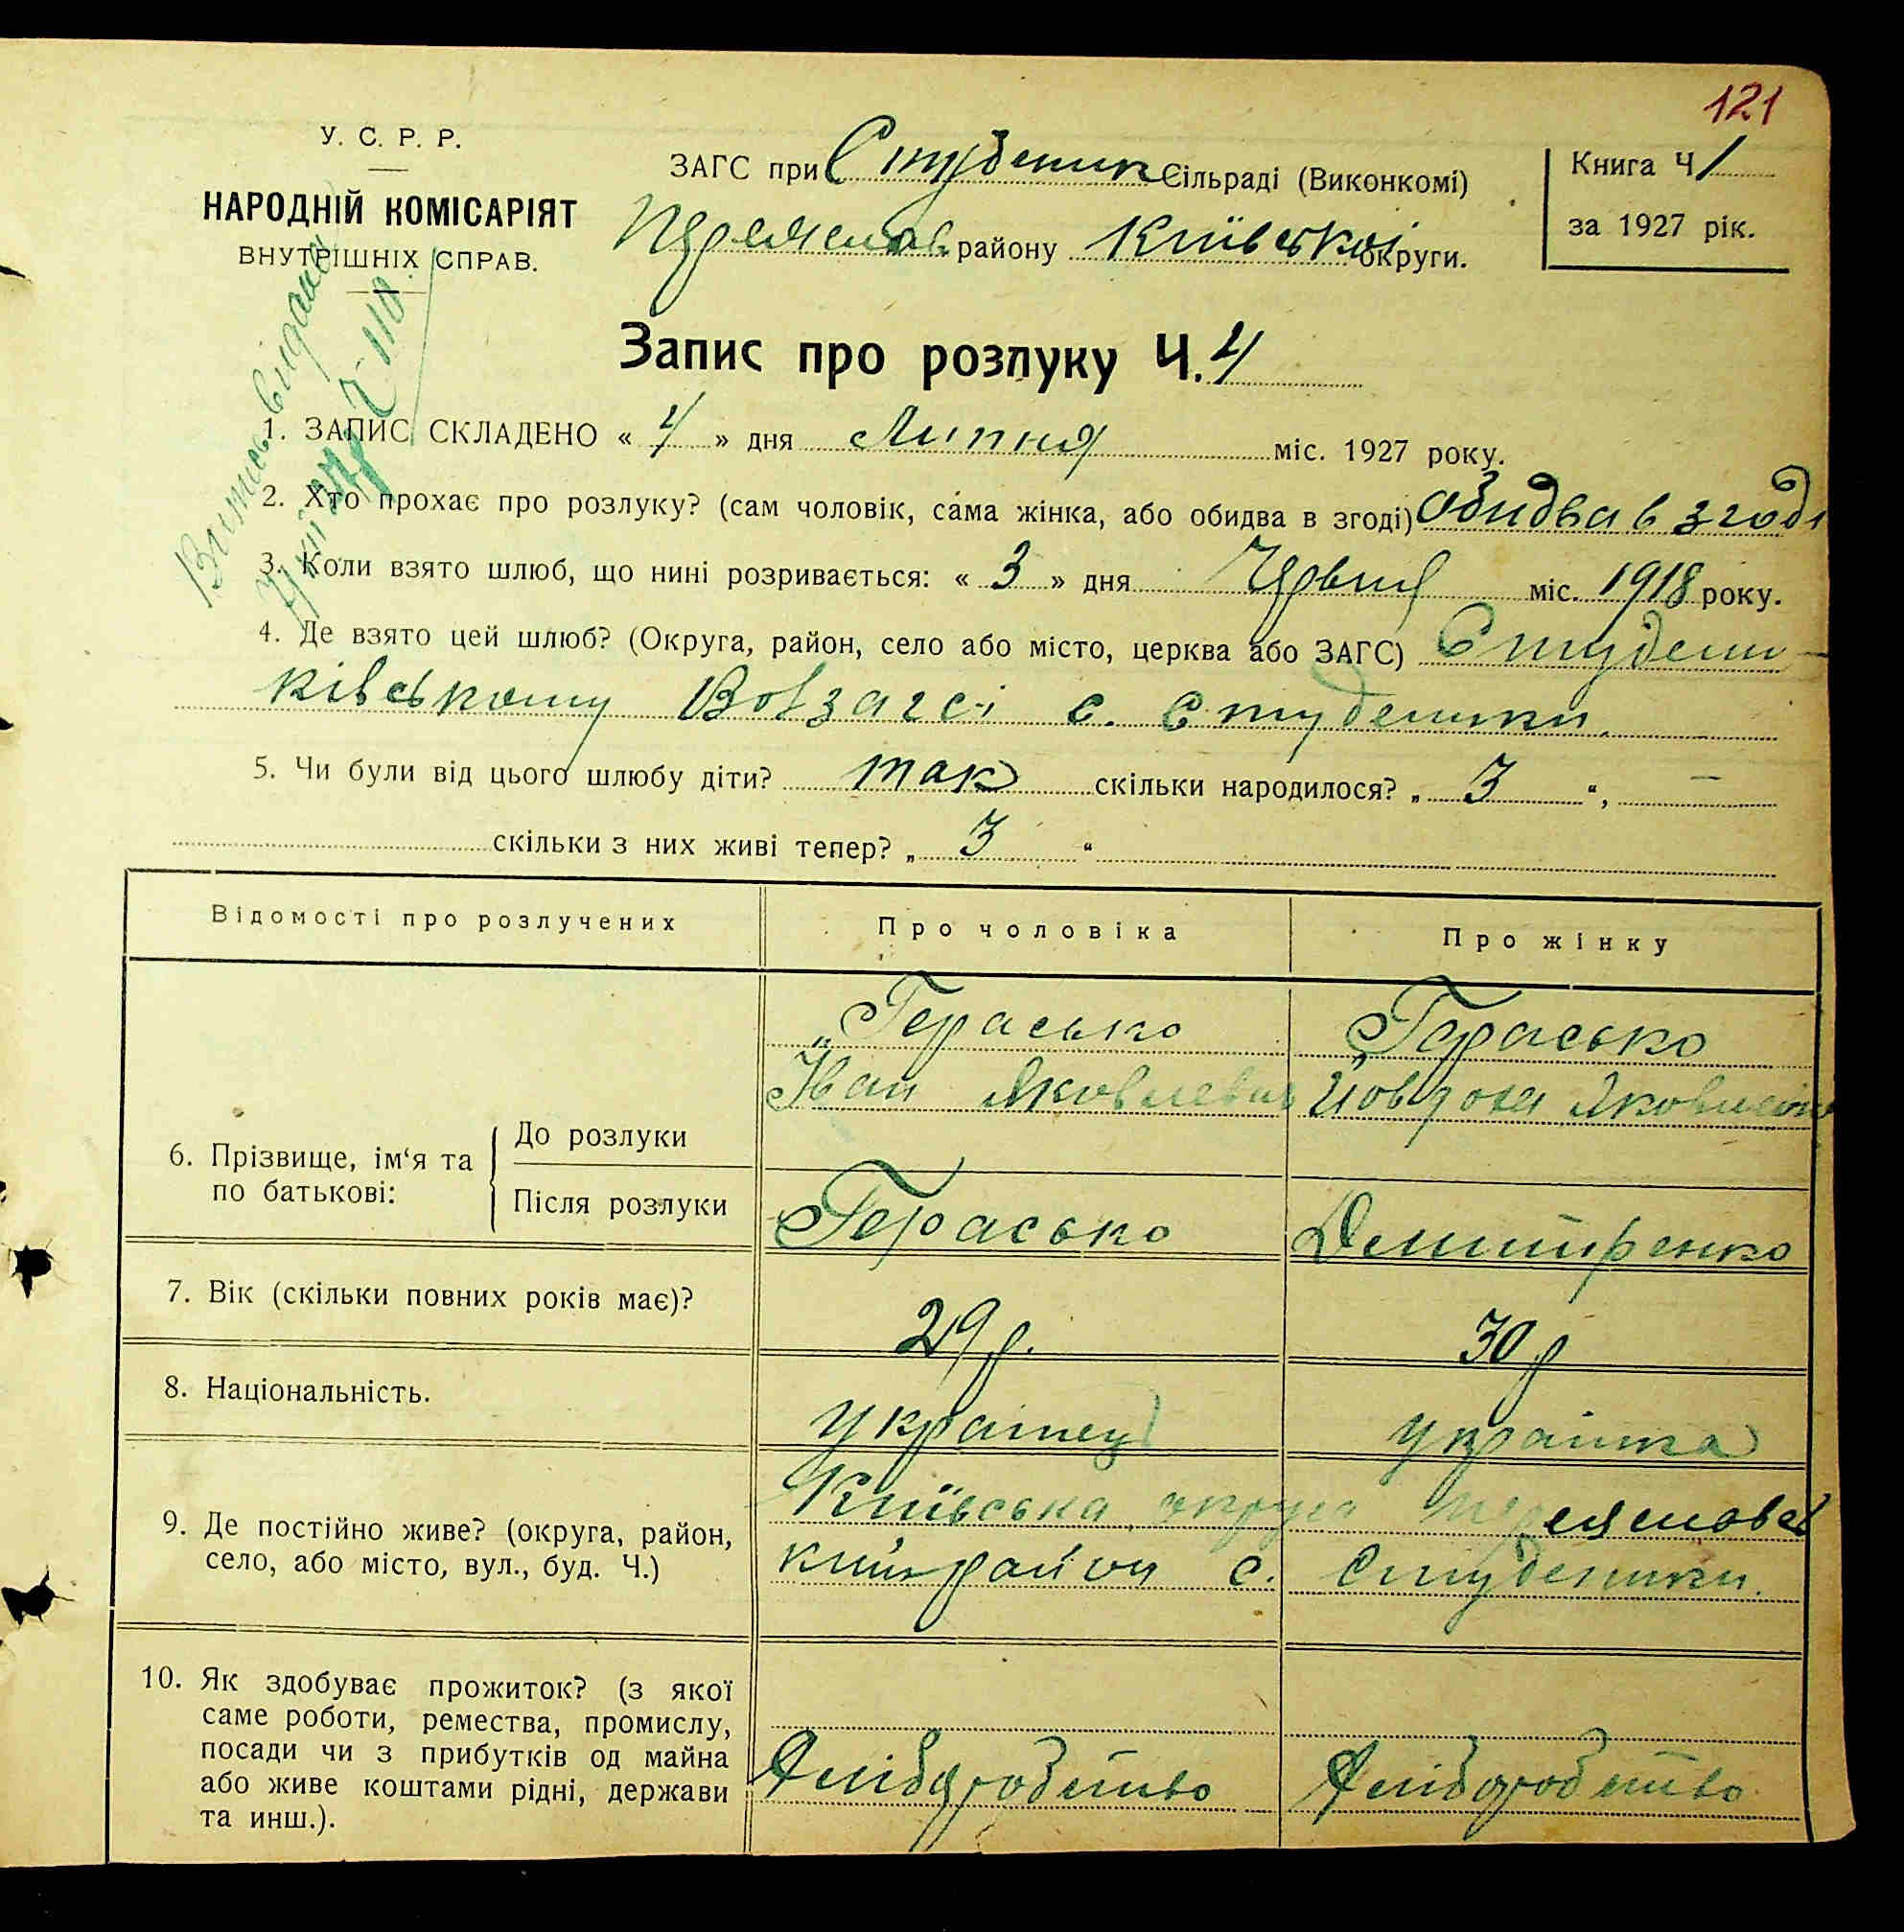 121
У. С. Р. Р.
НАРОДНІЙ КОМІСАРІЯТ
ВНУТРІШНІХ СПРАВ.
ЗАГС при Студеник Сільраді (Виконкомі)
Переяслав. району Київської округи.
Книга Ч 1
за 1927 рік.
Запис про розлуку Ч. 4
1. ЗАПИС СКЛАДЕНО « 4 » дня Липня міс. 1927 року.
2. Хто прохає про розлуку? (сам чоловік, сама жінка, або обидва в згоді) Обидва в згоді
3. Коли взято шлюб, що нині розривається: « 3 » дня Червня міс. 1918 року.
4. Де взято цей шлюб? (Округа, район, село або місто, церква або ЗАГС) Студени-
ківському Вовзагсі с. Студеники.
5. Чи були від цього шлюбу діти? так скільки народилося? „ 3 “, —
скільки з них живі тепер? „ 3 “
Відомості про розлучених Про чоловіка Про жінку
Герасько Герасько
Іван Яковлевич Йовдоха Яковлевна
6. Прізвище, ім‘я та по батькові:
До розлуки
Після розлуки Герасько Демитренко
7. Вік (скільки повних років має)? 29 р. 30 р
8. Національність. Українец Українка
9. Де постійно живе? (округа, район, Київська округа Переяславсь
село, або місто, вул., буд. Ч.) кий район с. Студеники.
10. Як здобуває прожиток? (з якої
саме роботи, ремества, промислу,
посади чи з прибутків од майна
або живе коштами рідні, держави Хліборобство Хліборобство
та инш.).
Витяг видано